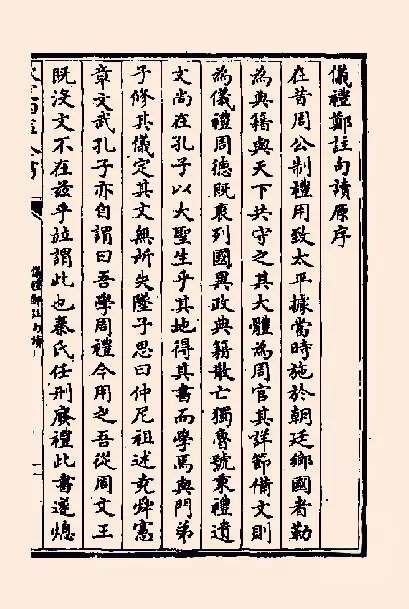 儀禮鄭註句讀原序
在昔周公制禮用致太平據當時施於朝廷鄉國者勒
為典籍與天下共守之其大體為周官其詳節備文則
為儀禮周德既衰列國異政典籍散亡獨魯號秉禮遺
文尚在孔子以大聖生乎其地得其書而學焉與門弟
子修其儀定其文無所失墜子思曰仲尼祖述堯舜憲
章文武孔子亦自謂曰吾學周禮今用之吾從周文王
既沒文不在茲乎竝謂此也秦氏任刑廢禮此書遂熄
儀禮鄭註句讀